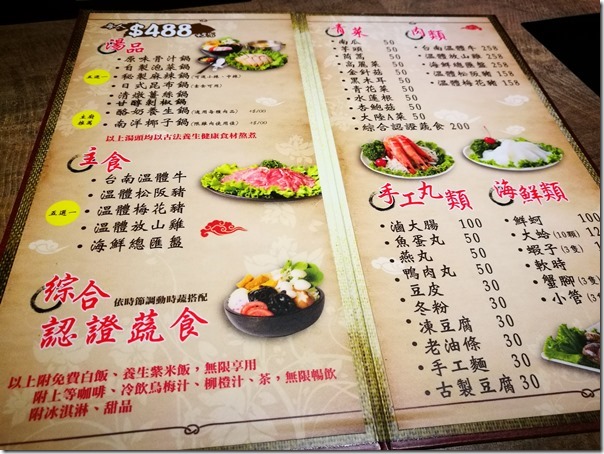 $488
湯品
五選一
主廚推薦
原味骨汁鍋
自製泡菜鍋
秘製麻辣鍋
日式昆布鍋
清燉薑絲鍋
甘醇剝椒鍋
酪奶養生鍋 +100
南洋椰子鍋 +100
以上湯頭均以古法養生健康食材熬煮
主食
五選一
台南溫體牛
溫體松阪豬
溫體梅花豬
溫體放山雞
海鮮總匯盤
綜合
認證蔬食
依時節調動時蔬搭配
以上附免費白飯、養生紫米飯，無限享用
附上等咖啡、冷飲烏梅汁、柳橙汁、茶，無限暢飲
附冰淇淋、甜品
青菜
南瓜 50
芋頭 50
茼萵 50
高麗菜 50
金針菇 50
黑木耳 50
青花菜 50
水蓮根 50
杏鮑菇 50
大陸A菜 50
綜合認證蔬食 200
肉類
台南溫體牛 258
溫體放山雞 258
海鮮總匯盤 258
溫體松阪豬 258
溫體梅花豬 258
手工丸類
滷大腸 100
魚蛋丸 50
燕丸 50
鴨肉丸 50
豆皮 30
冬粉 30
凍豆腐 30
老油條 30
手工麵 30
古製豆腐 30
海鮮類
鮮蚵 100
大蛤(10顆) 12
蝦子(3隻)
軟時
蟹腳(3隻)
小管(3隻)